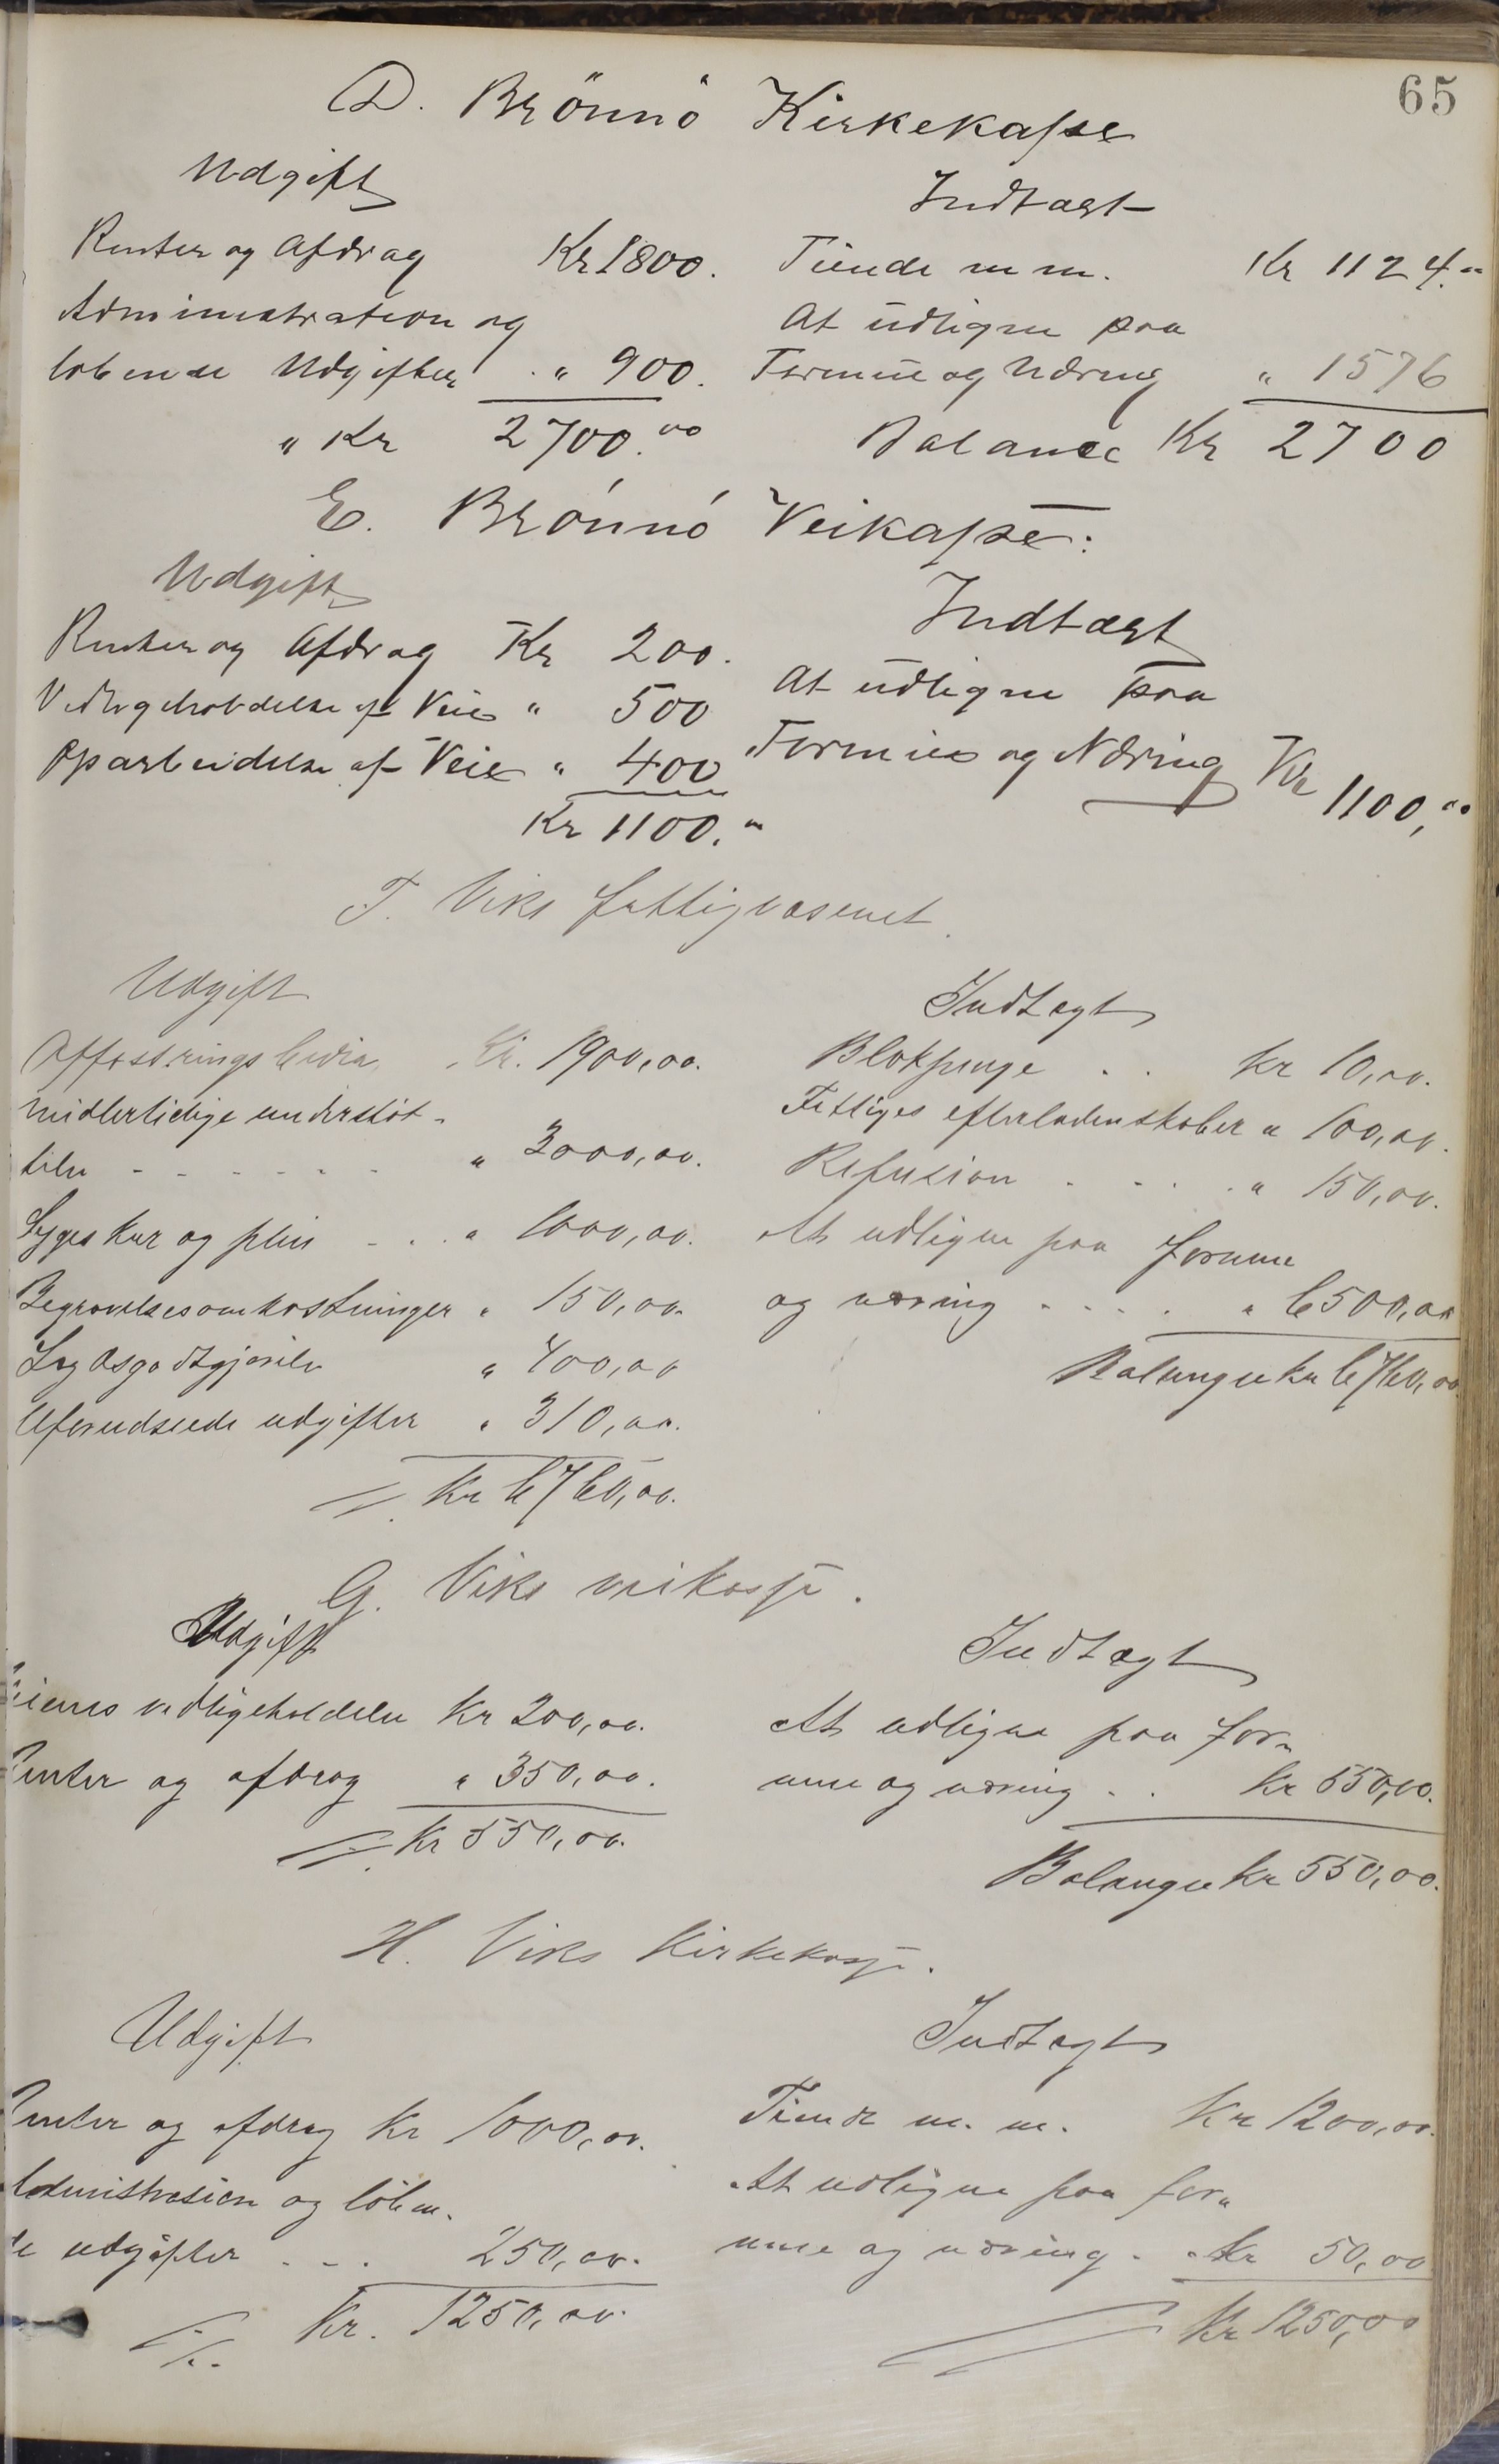 65
D. Brönnö Kirkekasse
Udgift
Renter og Afdrag Kr 1800.
Administration og
löbende Udgifter . " 900.
" Kr 2700.00
Indtægt
Tiende m m. Kr 1124.00
At udligne paa
Formue og Næring " 1576
Balance Kr 2700
E. Brönnö Veikasse:
Udgift
Renter og Afdrag Kr 200.
Vedligeholdelse af Veie " 500
Oparbeidelse af Veie " 400
Kr 1100.00
Indtægt
At udligne paa
Formue og Næring Kr 1100,00
F. Viks fattigvæsenet.
Udgift
Opfostringsbidra Kr. 1900,00.
Midlertidige understöt-
telse - - - - - " 3000,00.
Syges kur og pleie - . . " 1000,00.
Begravelsesomkostninger " 150,00.
Lægdsgodtgjörelse " 400,00
Uforudseede udgifter " 310,00.
Kr 6760,00.
Indtægt
Blokpenge . . Kr 10,00.
Fattiges efterladenskaber " 100,00.
Refusion . . . . " 150,00.
At udligne paa formue
og næring - - - . " 6500,00
Balangse kr 6760,00
G. Viks veikasse.
Udgift
eienes vedligeholdelse Kr 200,00.
enter og afdrag " 350,00.
Kr 550,00.
Indtægt
At udligne paa for-
mue og næring . . kr 550,00.
Balangse kr 550,00.
H. Viks Kirkekasse.
Udgift
enter og afdrag Kr 1000,00.
administrasion og löben-
de udgifter - - . 250,00.
Kr. 1250,00.
Indtægt
Tiende m. m. Kr 1200,00.
At udligne paa for-
mue og næring . . kr 50,00
Kr 1250,00